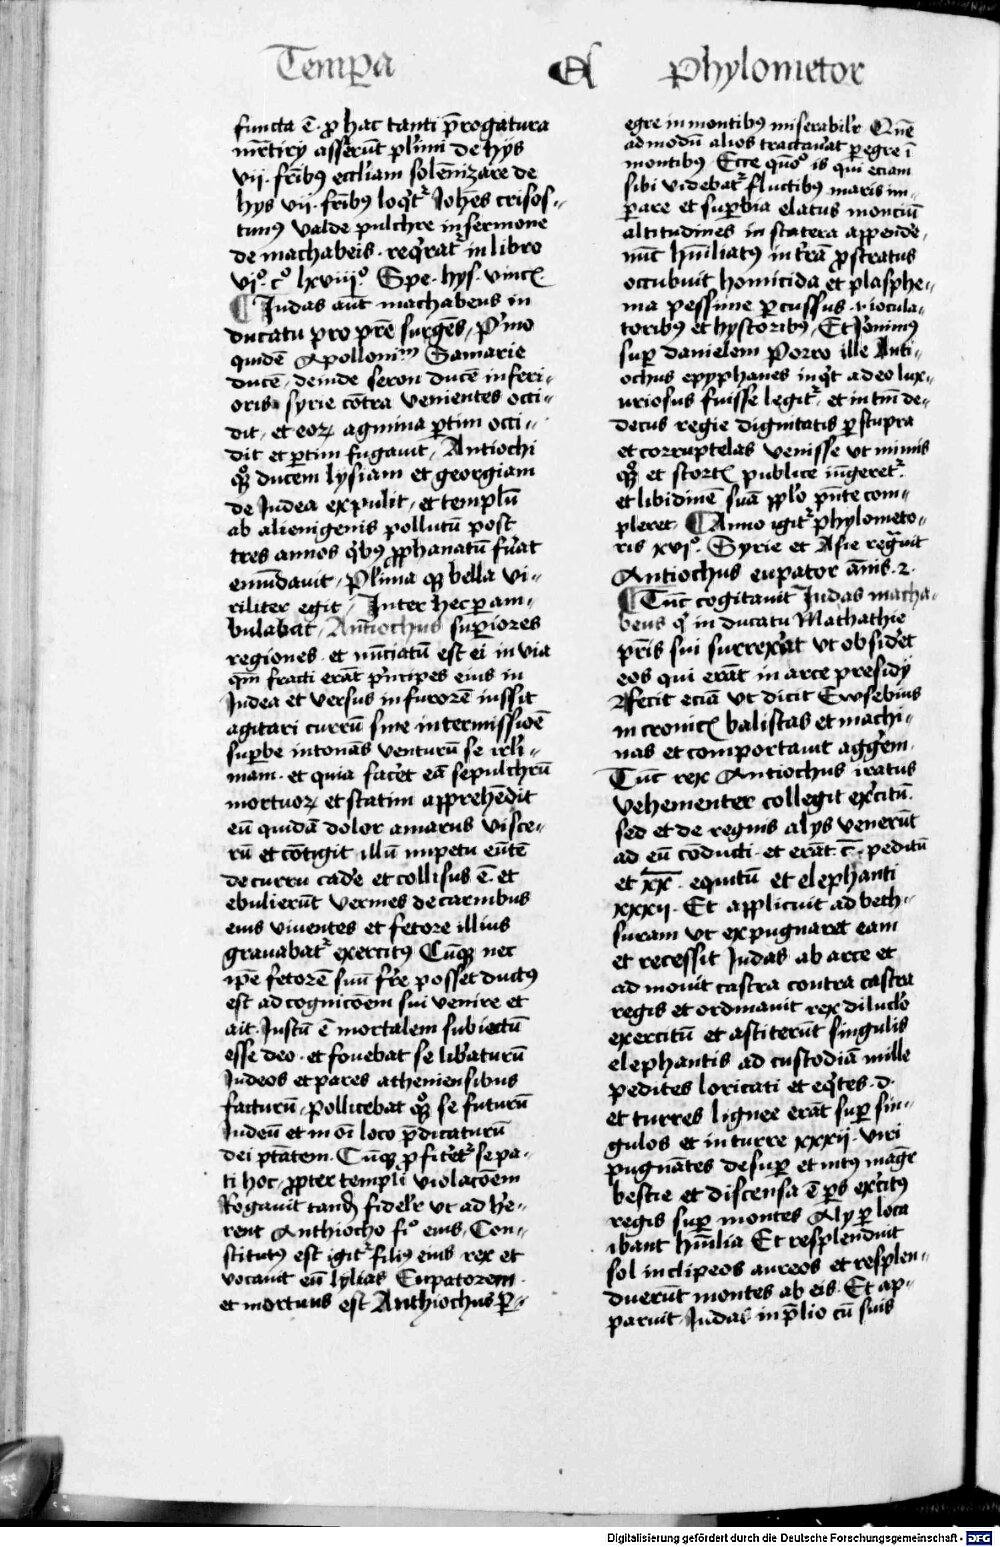 Tempa Et Phylometor
functa ē · ꝓ hac tanti p̄rogatura
mr̄tiry asserūt plimi de hys
vii · frībꝰ eccl̄iam solēnizare de
hys vii · frībꝰ loqͥtͬ Johēs crisos-
tunꝰ valde pulchre in sermone
de machabeis · reqͥratͬ in libro
viº · cº lxviijº · Spe · hys · vincꝭ
¶ Judas aūt machabeus in
ducatu pro prē surgēs, pͥmo
quidē Apolloniᵐ Samarie
ducē, deinde seron ducē inferi-
oris syrie cōtra venientes occi-
dit, et eoꝝ agmina ꝑtim occi-
dit et ꝑtim fugauit, Antiochi
qͦꝫ ducem lysiam et georgiam
de Judea expulit, et templū
ab alienigenis pollutū post
tres annos qͥbꝰ ꝓphanatū fūat
emūdauit, Plima qꝫ bella vi-
riliter egit, Inter hec ꝑam-
bulabat, Antiochus suꝑiores
regiones · et nūciatū est ei in via
qm̄ fracti erāt pͥncipes eius in
Judea et versus in furorē iussit
agitari currū sine intermissiōe
suꝑbe intonās venturū se irl̄i-
mam · et quia facēt eā sepulchrū
mortuoꝝ et statim apprehēdit
eū quidā dolor amarus visce-
rū et cōtigit illū impetu eūtē
de curru cadē et collisus ē · et
ebulierūt vermes de carnibus
eius viuentes et fetore illius
grauabatͬ exercitus Cūqꝫ nec
ip̄e fetorē suū fr̄e posset ductꝰ
est ad cognicōem sui venire et
ait · Justū ē mortalem subiectū
esse deo · et fouebat se lib̄aturū
Judeos et pares atheniensibus
facturū, Pollicebatͬ qͦꝫ se futurū
Judeū et in oī loco p̄dicaturū
dei ptātem · Cūqꝫ ꝓfiteretͬ se pa-
ti hoc, ꝓpter templi violacōem
Rogauit tandē fidelr̄ vt adhe-
rent Anthiocho fiº eius, Con-
stitutꝰ est igitͬ filiꝰ eius rex et
vocauit eū lysias Eupatorem
et mortuus est Anthiochus ꝑ-
egre in montibꝰ miserabilr̄ Quē
admodū alios tractauat ꝑegre ī
montibꝰ Ecce quōº is qui eciam
sibi videbatͬ fluctibꝰ maris im-
ꝑare et suꝑbia elatus monciū
altitudines in statera appende,
nūc hūiliatus in trā ꝓstratus
occubuit homicida et plasphe-
ma pessime ꝑcussus · a iocula-
toribꝰ et hystoribꝰ, Et Jeronimꝰ
suꝑ danielem Porro ille Anti-
ochus epyphanes inqͥt adeo lux-
uriosus fuisse legitͬ, et in tm̄ de-
decus regie dignitatis ꝑ stupra
et corruptelas venisse vt mimis
qͦꝫ et scortꝭ publice iūgeretͬ
et libidinē suā pp̄lo pn̄te com-
pleret · ¶ Anno igitͬ phylometo-
ris xviº · Syrie et Asie regnauit
Antiochus eupator annis · 2 ·
¶ Tūc cogitauit Judas macha-
beus qͥ in ducatu Mathathie
pr̄is sui surrexat vt obsidet
eos qui erāt in arce presidy
Afecit eciā vt dicit Ewsebius
in cronicꝭ balistas et machi-
nas et comportauit aggēm ·
Tūc rex Antiochus iratus
vehementer collegit excitū ·
sed et de regnis alys venerūt
ad eū cōducti · et erāt · c̄ · peditū
et x̄x̄ · equitū et elephanti
xxxij · Et applicuit ad beth-
suram vt expugnaret eam
et recessit Judas ab arce et
admouit castra contra castra
regis et ordinauit rex diluclo
exercitū et astiterūt singulis
elephantis ad custodiā mille
pedites loricati et eqͥtes · d ·
et turres lignee erāt suꝑ sin-
gulos et in turre xxxij · viri
pugnātes desuꝑ et intꝰ magr̄
bestie et discensa ē ꝑs excitꝰ
regis suꝑ montes Aly ꝑ loca
ibant hūilia Et resplenduit
sol in clipeos aureos et resplen-
duerūt montes ab eis · Et ap-
paruit Judas in p̄lio cū suis
Digitalisierung gefördert durch die Deutsche Forschungsgemeinschaft - DFG